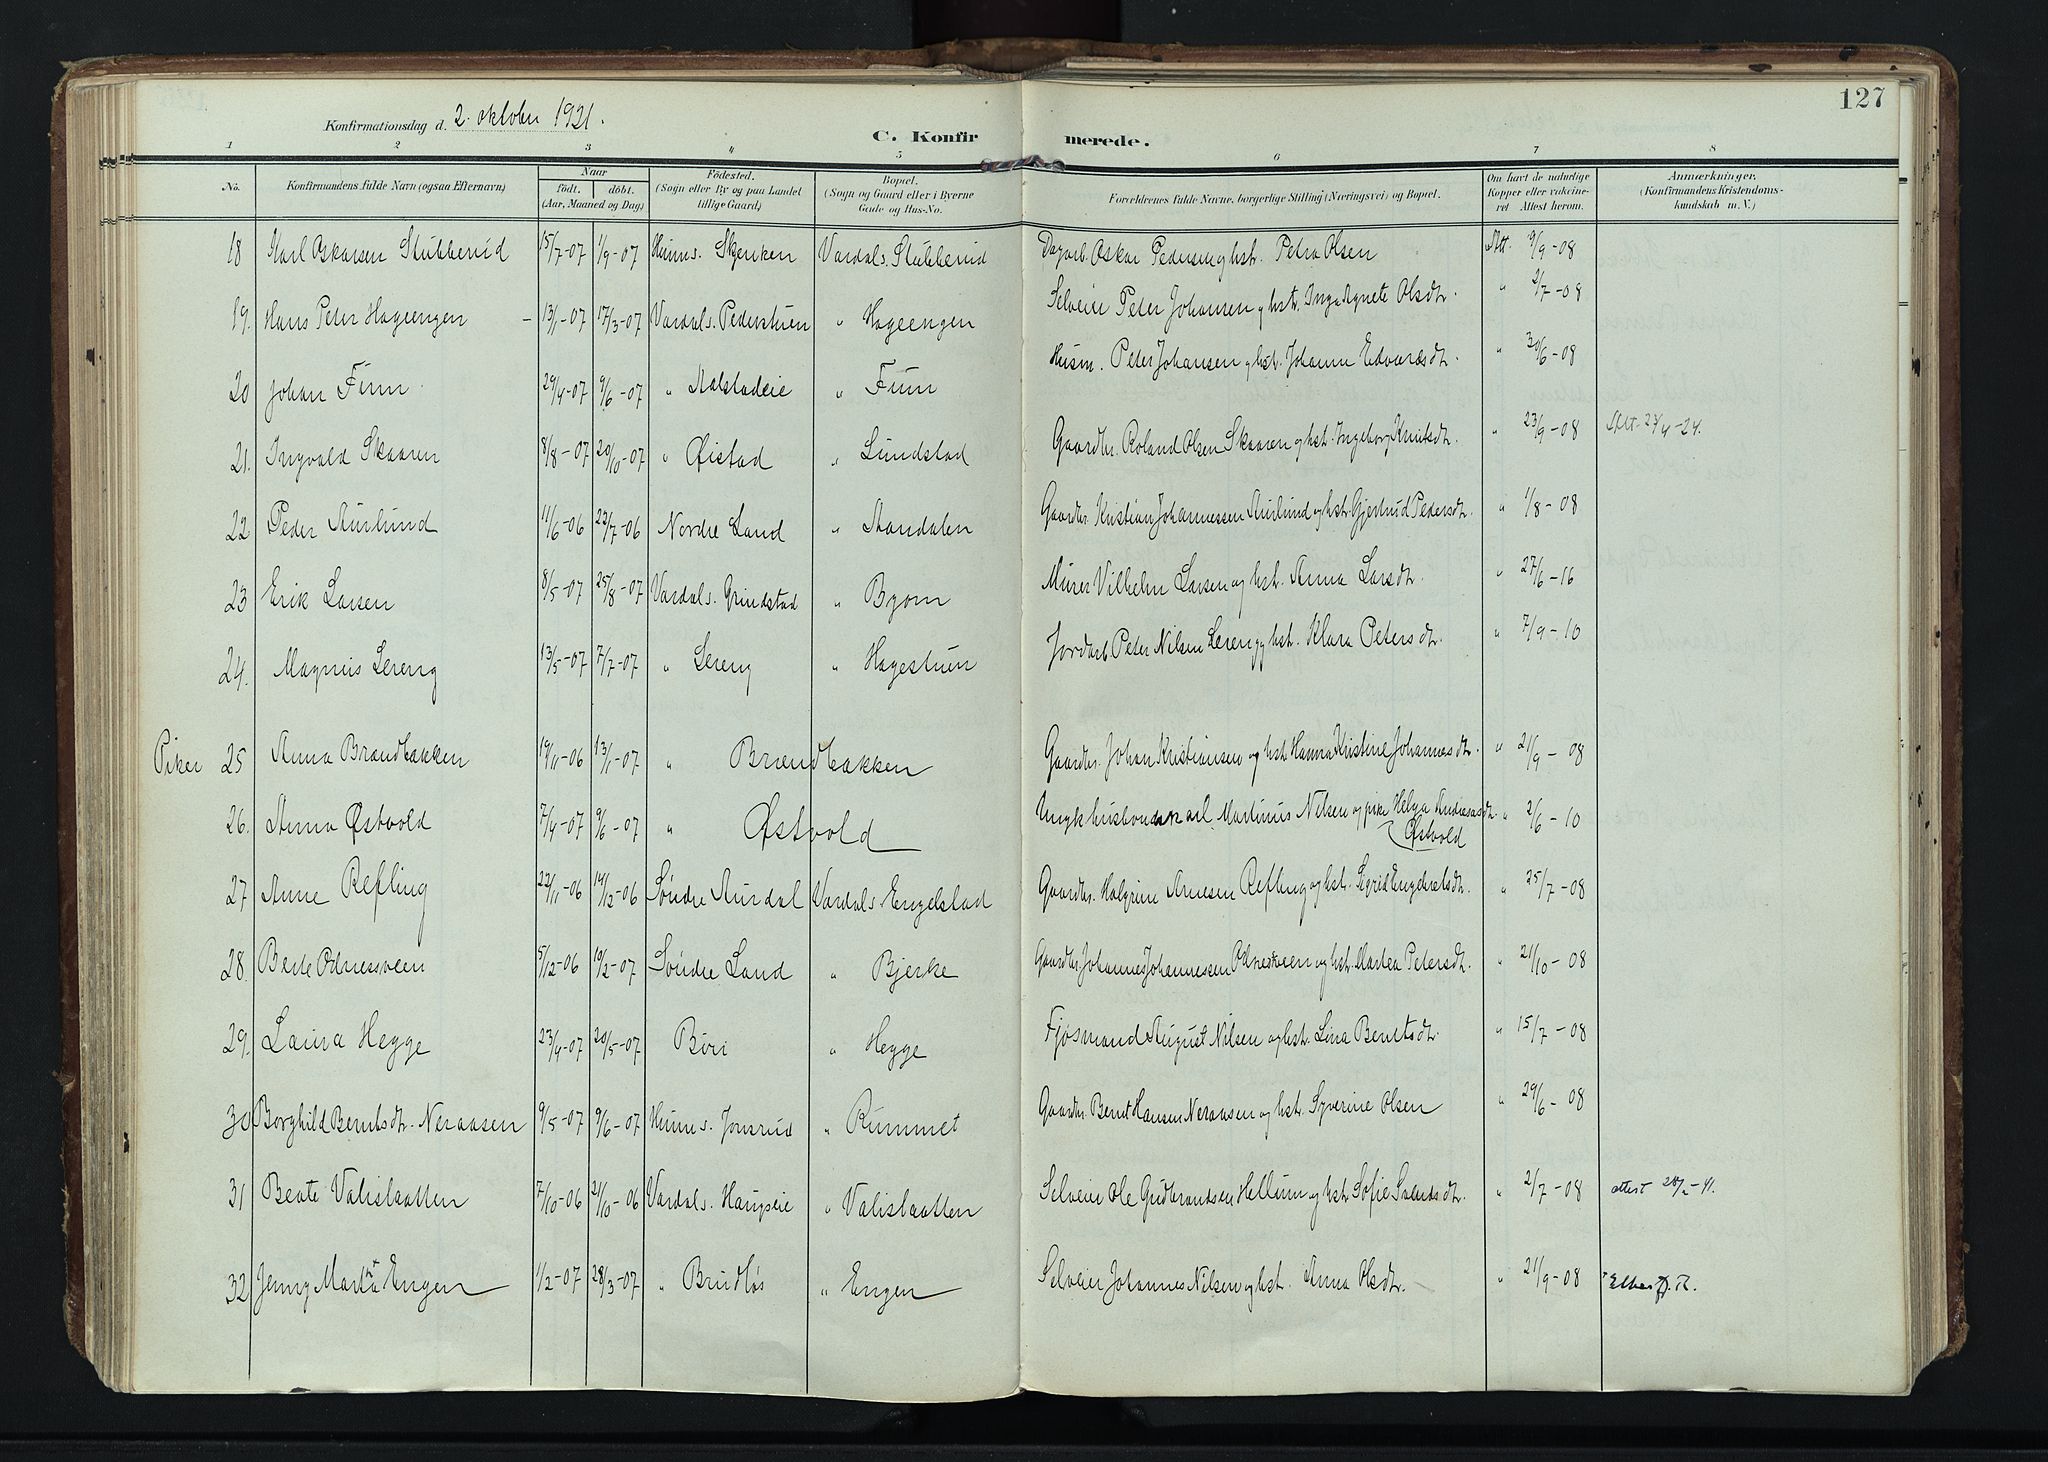 127
Konfirmationsdag d. 2. oktober 1921.
C. Konfirmerede.
1 2 3 4 5 6 7 8
No. Konfirmandens fulde Navn (ogsaa Efternavn) Naar født. døbt. (Aar, Maaned og Dag) Fødested. (Sogn eller By og paa Landet tillige Gaard) Bopæl. (Sogn og Gaard eller i Byerne Gade og Hus-No. Forældrenes fulde Navne, borgerlige Stilling (Næringsvei) og Bopæl. Om havt de naturlige Kopper eller vakcineret Attest herom. Anmærkninger. (Konfirmandens Kristendomskundskab m. V.)
18 Karl Oskarsen Stubberud 15/7-07 1/9-07 Hunns. Skjenken Vardals. Stubberud Dagarb. Oskar Pedersen og hst. Petra Olsen Att. 9/9-08
19. Hans Peter Hageengen - 13/1-07 17/3-07 Vardals. Pederstuen " Hageengen Selveier Peter Johansen og hst. Inga Agnete Olsdtr. " 2/7-08
20 Johan Fiun 29/4-07 9/6-07 " Aalstadeie " Fiun Husm. Peter Johansen og hst. Johanne Edvardsdtr. " 30/6-08
21. Ingvald Skaaren 8/8-07 20/10-07 " Øistad " Lundstad Gaardbr. Roland Olsen Skaaren og hst. Ingeborg Knutsdtr. " 23/9-08 Att. 23/4-24.
22 Peder Aurlund 11/6-06 22/7-06 Nordre Land " Aandalen Gaardbr. Kristian Johannessen Aurlund og hst. Gjertrud Pedersdtr. " 1/8-08
23 Erik Larsen 8/5-07 25/8-07 Vardals. Grindstad " Byom Murer Vilhelm Larsen og hst. Anna Larsdtr. " 27/6-16
24. Magnus Lereng 13/5-07 7/7-07 " Lereng " Hagestuen Jordarb. Peter Nilsen Lereng og hst. Klara Petersdtr. " 7/9-10
Piker 25 Anna Brandbakken 19/11-06 13/1-07 " Brændbakken Gaardbr. Johan Kristiansen og hst. Hanna Kristine Johannesdtr. " 21/9-08
26. Anna Østvold 7/4-07 9/6-07 " Østvold Ungk. husbondkarl Martinus Nilsen og pike Helga Andreasdtr. " 2/6-10
Østvold
27 Anne Refling 22/11-06 14/12-06 Søndre Aurdal Vardals. Engelstad Gaardbr. Halgrim Arnesen Refling og hst. Sigrid Engebretsdtr. " 25/7-08
28. Berte Odnesveen 5/12-06 10/2-07 Søndre Land " Bjerke Gaardbr. Johannes Johannessen Odnesveen og hst. Martea Petersdtr. " 21/10-08
29. Laura Hegge 23/4-07 20/5-07 Biri " Hegge Fjøsmand August Nilsen og hst. Lina Berntsdtr. " 15/7-08
30 Borghild Berntsdtr. Neraasen 9/5-07 9/6-07 Hunns. Jonsrud " Rummet Gaardbr. Bernt Hansen Neraasen og hst. Syverine Olsen " 29/6-08
31 Beate Valislaatten 7/10-06 21/10-06 Vardals. Haugseie " Valislaatten Selveier Ole Gudbrandsen Hellum og hst. Sofie Svendsdtr. " 2/7-08 attest 28/2-41.
32 Jenny Martha Engen 1/2-07 28/3-07 " Brudløs " Engen Selveier Johannes Nilsen og hst. Anna Olsdtr. " 21/9-08